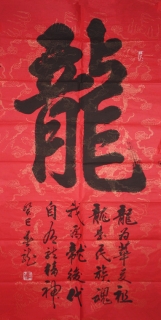 龍
龍為華夏祖
龍是民族魂
我為龍後代
自有龍精神
癸巳